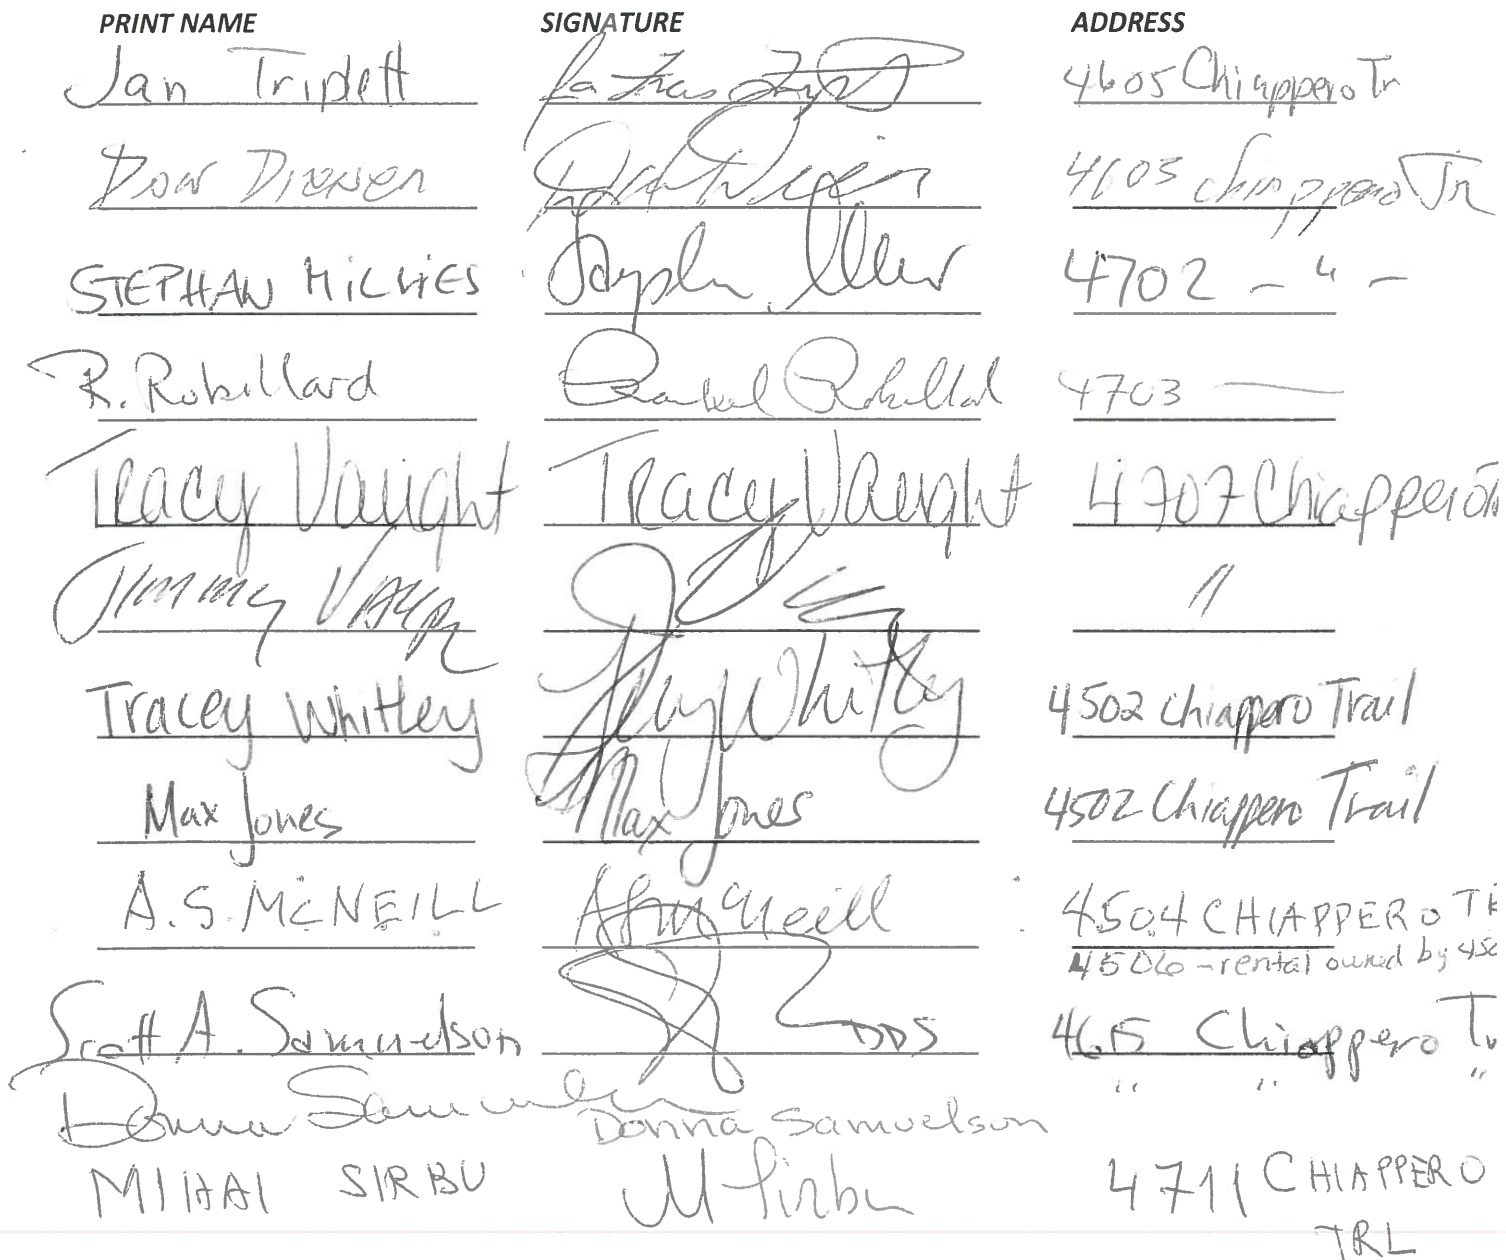 PRINT NAME SIGNATURE ADDRESS
Jan Triplett 4605 Chiappero Tr
Don Diener 4603 Chiappero Tr
STEPHAN MILVIES 4702 – " –
R. Robillard Rachel Robillard 4703 —
Tracy Vaught Tracy Vaught 4707 Chiappero Tr
Jimmy "
Tracey Whitley Tracey Whitley 4502 Chiappero Trail
Max Jones Max Jones 4502 Chiappero Trail
A.S. McNEILL AS McNeill 4504 CHIAPPERO TR
4506 – rental owned by 450
Scott A. Samuelson DDS 4615 Chiappero Tr
Donna Samuelson Donna Samuelson " " "
MIHAI SIRBU M Sirbu 4711 CHIAPPERO
TRL